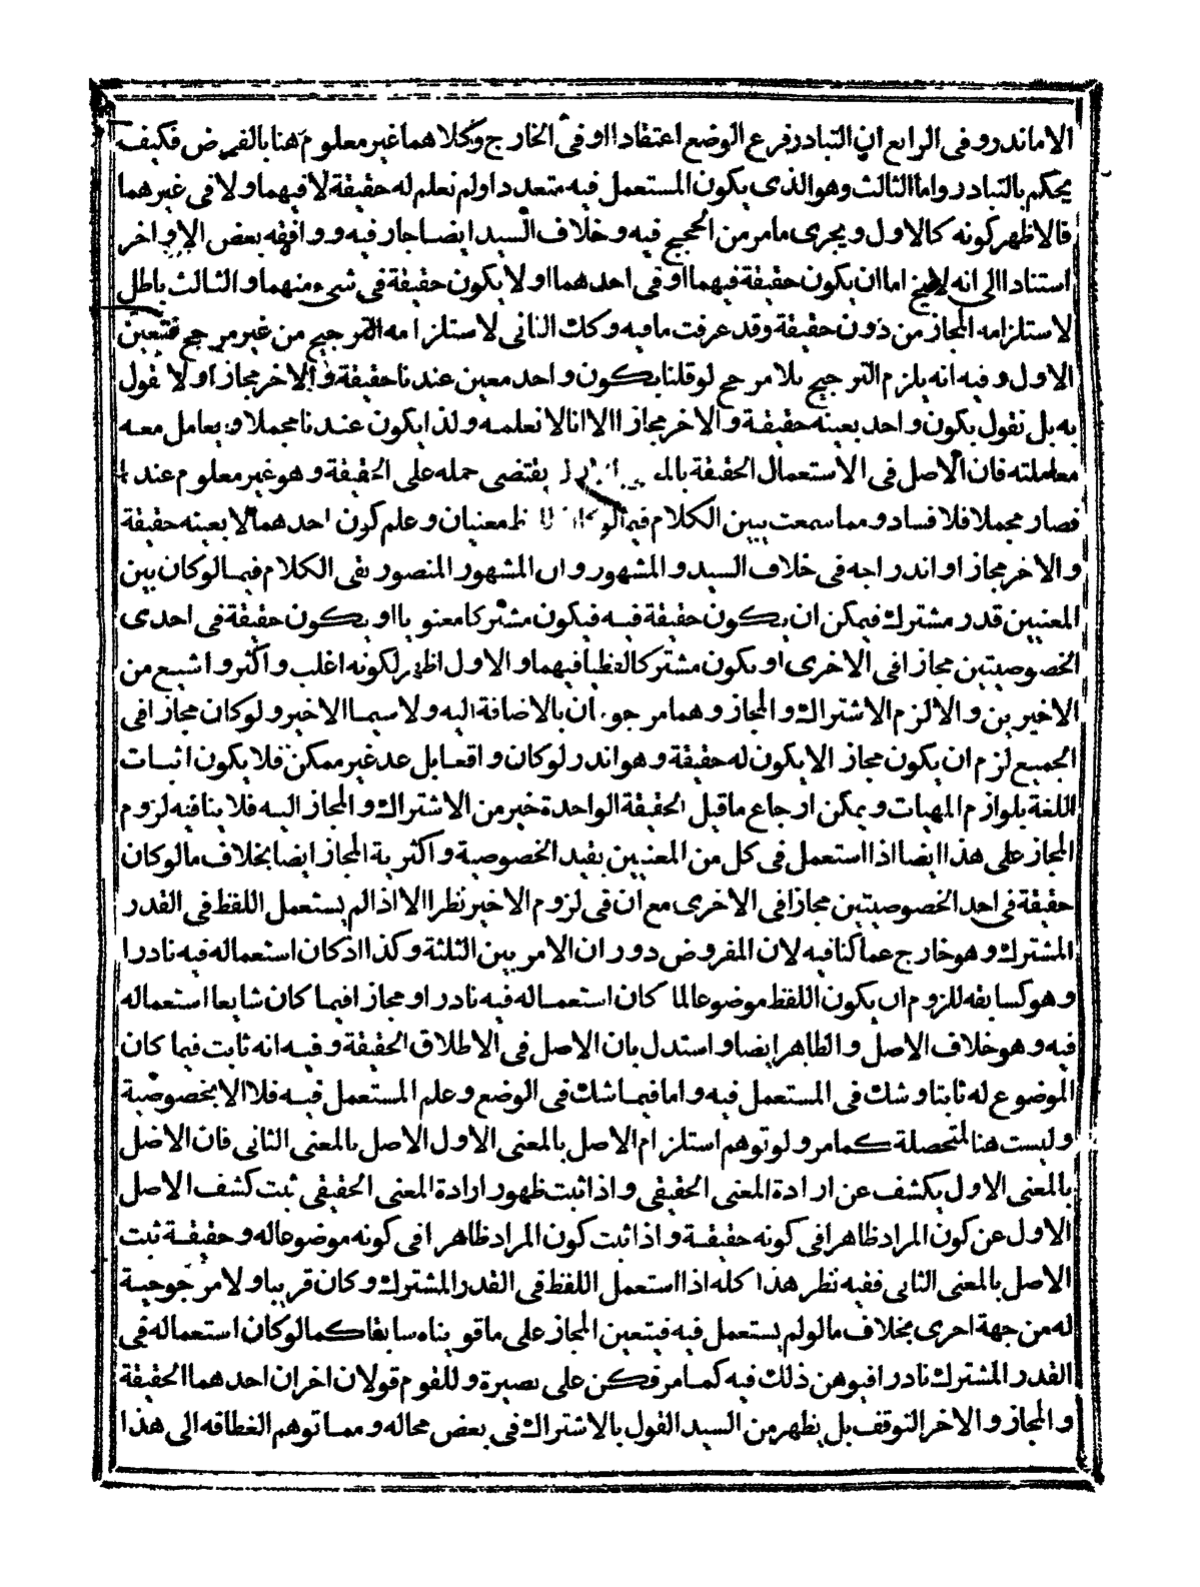 الاماندر وفى الرابع ان التبادر فرع الوضع اعتقادا او فى الخارج وكلاهما غير معلوم هنا بالفرض فكيف
يحكم بالتبادر واما الثالث وهو الذى يكون المستعمل فيه متعددا ولم نعلم له حقيقة لا فيهما ولا فى غيرهما
فالاظهر كونه كالاول ويجرى مامر من الحجج فيه وخلاف السيد ايضا جار فيه ووافقه بعض الاواخر
استنادا الى انه لايخ اما ان يكون حقيقة فيهما او فى احدهما او لا يكون حقيقة فى شىء منهما والثالث باطل
لاستلزامه المجاز من دون حقيقة وقد عرفت مافيه وكك الثانى لاستلزامه الترجيح من غير مرجح فتعين
الاول وفيه انه يلزم الترجيح بلا مرجح لو قلنا بكون واحد معين عندنا حقيقة والاخر مجازا ولا نقول
به بل نقول بكون واحد بعينه حقيقة والاخر مجازا الا انا لا نعلمه ولذا يكون عندنا مجملا ونعامل معه
معاملته فان الاصل فى الاستعمال الحقيقة يقتضى حمله على الحقيقة وهو غير معلوم عندنا
فصار مجملا فلا فساد ومما سمعت يبين الكلام فيما لو كان للفظ معنيان وعلم كون احدهما لا بعينه حقيقة
والاخر مجازا واندراجه فى خلاف السيد والمشهور وان المشهور المنصور بقى الكلام فيما لو كان بين
المعنيين قدر مشترك فيمكن ان يكون حقيقة فيه فيكون مشتركا معنويا او يكون حقيقة فى احدى
الخصوصيتين مجازا فى الاخرى او يكون مشتركا لفظيا فيهما والاول اظهر لكونه اغلب واكثر واشيع من
الاخيرين والا لزم الاشتراك والمجاز وهما مرجوحان بالاضافة اليه ولا سيما الاخير ولو كان مجازا فى
الجميع لزم ان يكون مجاز الا يكون له حقيقة وهو اندر لو كان واقعا بل عد غير ممكن فلا يكون اثبات
اللغة بلوازم المهيات ويمكن ارجاع ما قيل الحقيقة الواحدة خير من الاشتراك والمجاز اليه فلا ينافيه لزوم
المجاز على هذا ايضا اذا استعمل فى كل من المعنيين بقيد الخصوصية واكثرية المجاز ايضا بخلاف ما لو كان
حقيقة فى احد الخصوصيتين مجازا فى الاخرى مع ان فى لزوم الاخير نظرا الا اذا لم يستعمل اللفظ فى القدر
المشترك وهو خارج عما كنا فيه لان المفروض دوران الامر بين الثلثة وكذا اذ كان استعماله فيه نادرا
وهو كسابقه للزوم ان يكون اللفظ موضوعا لما كان استعماله فيه نادرا ومجازا فيما كان شايعا استعماله
فيه وهو خلاف الاصل والظاهر ايضا واستدل بان الاصل فى الاطلاق الحقيقة وفيه انه ثابت فيما كان
الموضوع له ثابتا وشك فى المستعمل فيه واما فيما شك فى الوضع وعلم المستعمل فيه فلا الا بخصوصية
وليست هنا لمتحصلة كما مر ولو توهم استلزام الاصل بالمعنى الاول الاصل بالمعنى الثانى فان الاصل
بالمعنى الاول يكشف عن ارادة المعنى الحقيقى واذا ثبت ظهور ارادة المعنى الحقيقى ثبت كشف الاصل
الاول عن كون المراد ظاهرا فى كونه حقيقة واذا ثبت كون المراد ظاهرا فى كونه موضوعا له وحقيقة ثبت
الاصل بالمعنى الثانى ففيه نظر هذا كله اذا استعمل اللفظ فى القدر المشترك وكان قريبا ولا مرجوحية
له من جهة اخرى بخلاف ما لو لم يستعمل فيه فيتعين المجاز على ما قويناه سابقا كما لو كان استعماله فى
القدر المشترك نادرا فيوهن ذلك فيه كما مر فكن على بصيرة وللقوم قولان اخران احدهما الحقيقة
والمجاز والاخر التوقف بل يظهر من السيد القول بالاشتراك فى بعض محاله ومما توهم الغطافه الى هذا